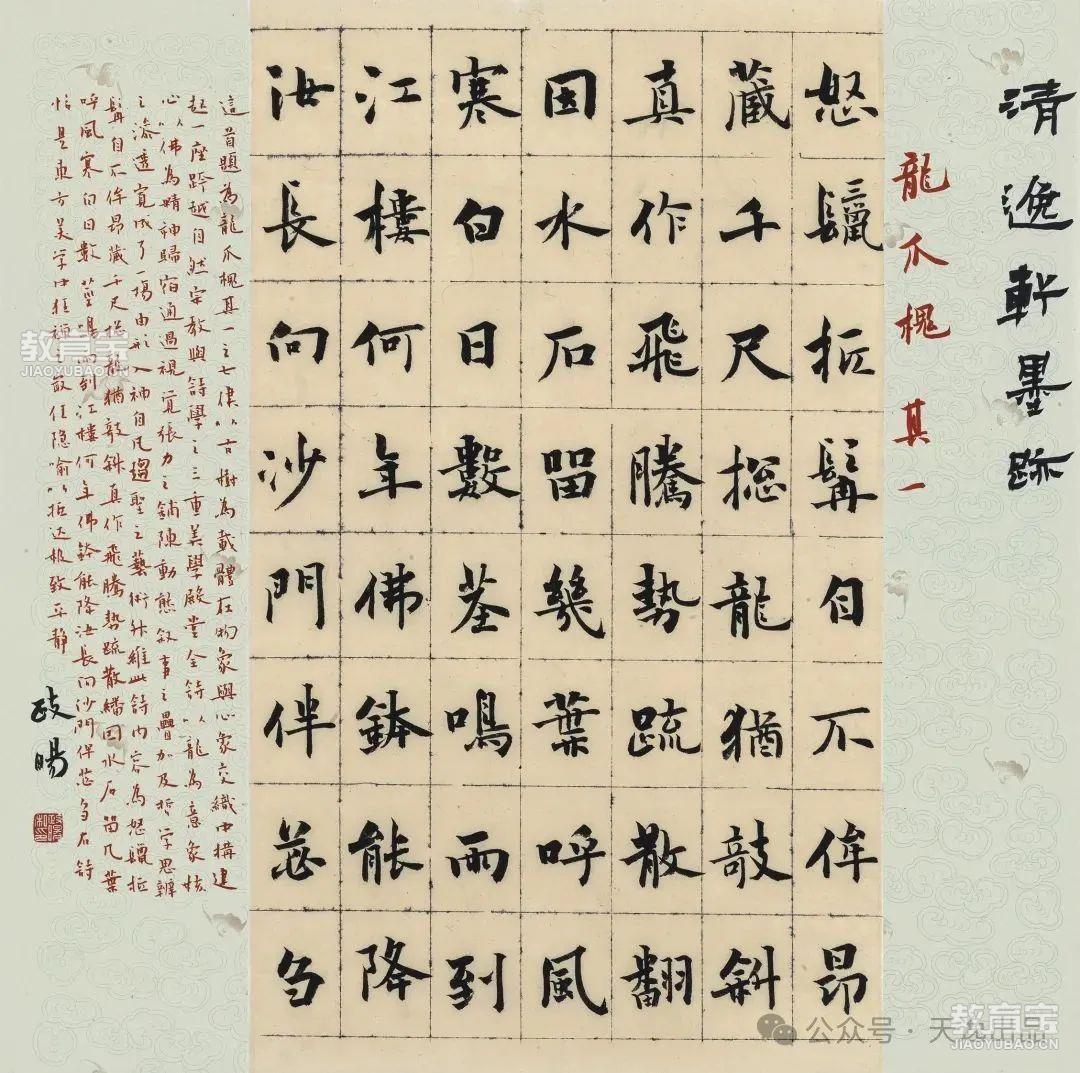 清逸軒墨跡
龍爪槐 其一
怒鬣拒髯自不侔昂
藏千尺摐龍猶敧斜
真作飛騰勢疏散翻
因水石留幾葉呼風
寒白日數莖鳴雨到
江樓何年佛鉢能降
汝長向沙門伴苾芻
這首題為龍爪槐其一之七律以古樹為載體在物象與心象交織中構建
起一座跨越自然宗教與詩學之三重美學殿堂全詩以龍為意象核
心以佛為精神歸宿通過視覺張力之鋪陳動態敘事之疊加及哲學思辨
之滲透寬成了一場由形入神自凡趨聖之藝術升維此詩內容為怒鬣拒
髯自不侔昂藏千尺摐龍猶敧斜真作飛騰勢疏散翻因水石留几葉
呼風寒白日數莖鳴雨到江樓何年佛鉢能降汝長向沙門伴苾芻右詩
恰是東方美學中狂禪 放任隱喻以抵达极致平静
政暘
教育宝
JIAOYUBAO.CN
公众号·天
教育宝
JIAOYUBAO.CN